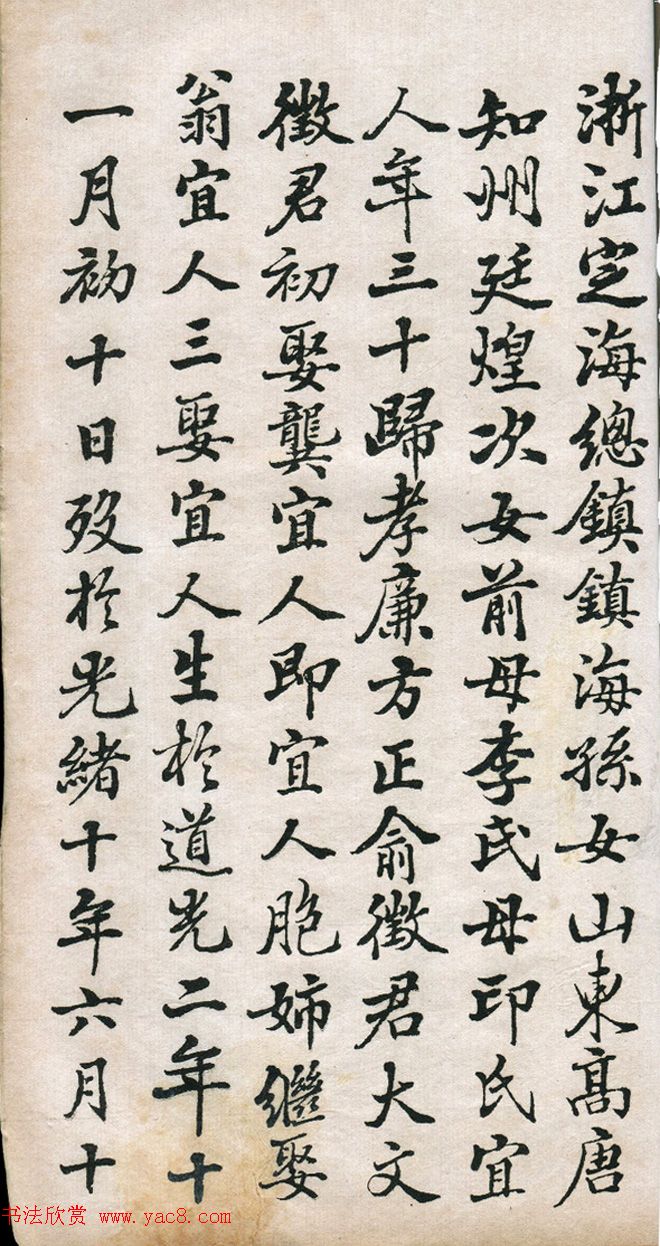 浙江定海總鎮鎮海孫女山東高唐
知州廷煌次女前母李氏母印氏宜
人年三十歸孝廉方正俞徵君大文
徵君初娶龔宜人即宜人胞姊繼娶
翁宜人三娶宜人生於道光二年十
一月初十日歿於光緒十年六月十
书法欣赏 www.yac8.com